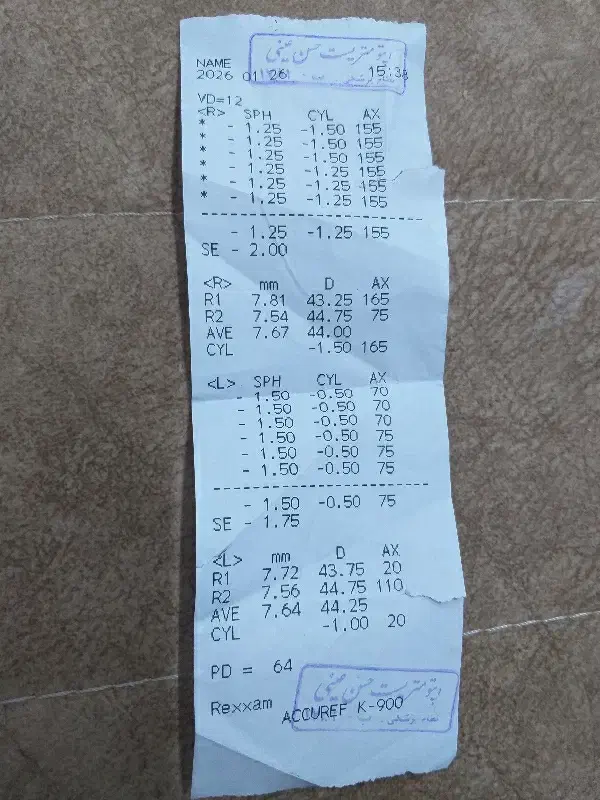 اپتومتریست حسن عینی
NAME
2026 01 26 15:38
VD=12
<R> SPH CYL AX
* - 1.25 -1.50 155
* - 1.25 -1.50 155
* - 1.25 -1.50 155
* - 1.25 -1.25 155
* - 1.25 -1.25 155
* - 1.25 -1.25 155
- 1.25 -1.25 155
SE - 2.00
<R> mm D AX
R1 7.81 43.25 165
R2 7.54 44.75 75
AVE 7.67 44.00
CYL -1.50 165
<L> SPH CYL AX
- 1.50 -0.50 70
- 1.50 -0.50 70
- 1.50 -0.50 70
- 1.50 -0.50 75
- 1.50 -0.50 75
- 1.50 -0.50 75
- 1.50 -0.50 75
SE - 1.75
<L> mm D AX
R1 7.72 43.75 20
R2 7.56 44.75 110
AVE 7.64 44.25
CYL -1.00 20
PD = 64
اپتومتریست حسن عینی
Rexxam ACCUREF K-900